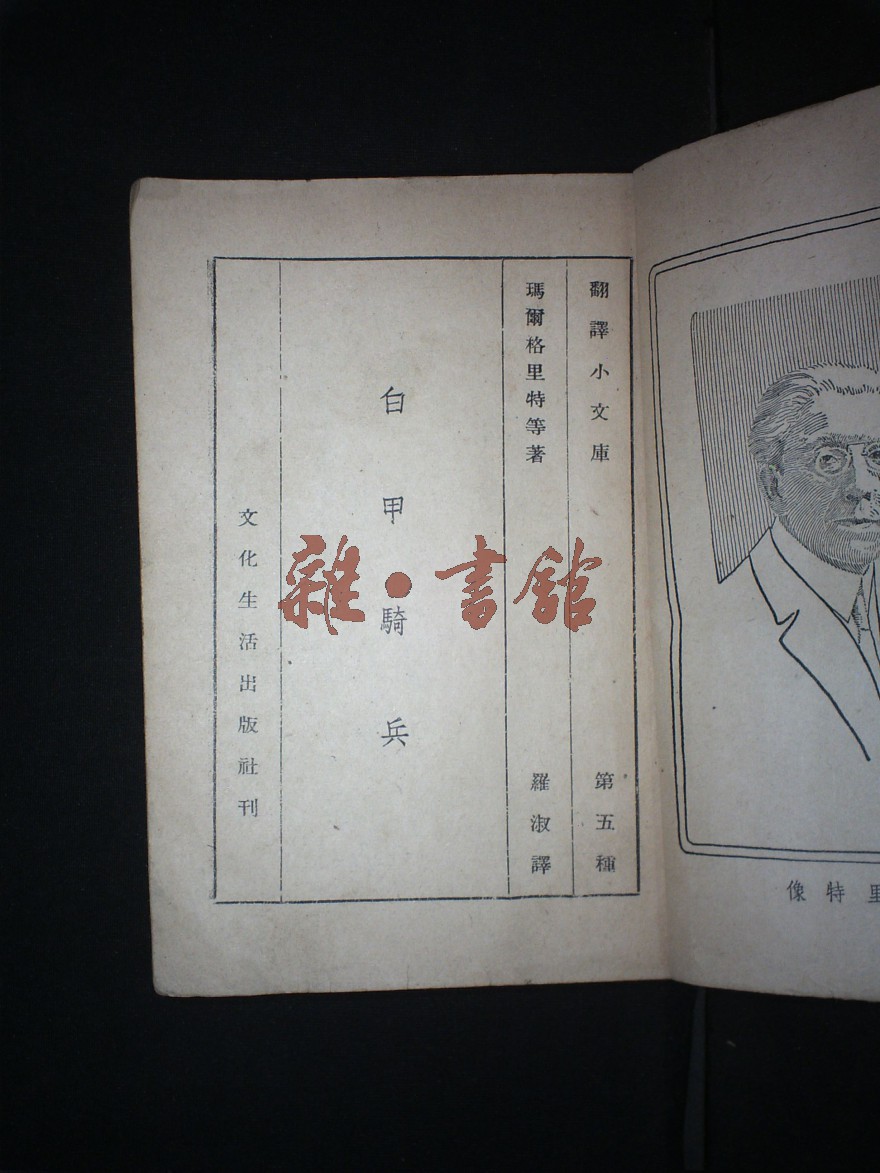 翻譯小文庫
第五種
瑪爾格里特等著
羅淑譯
白甲騎兵
文化生活出版社刊
雜•書館
像特里